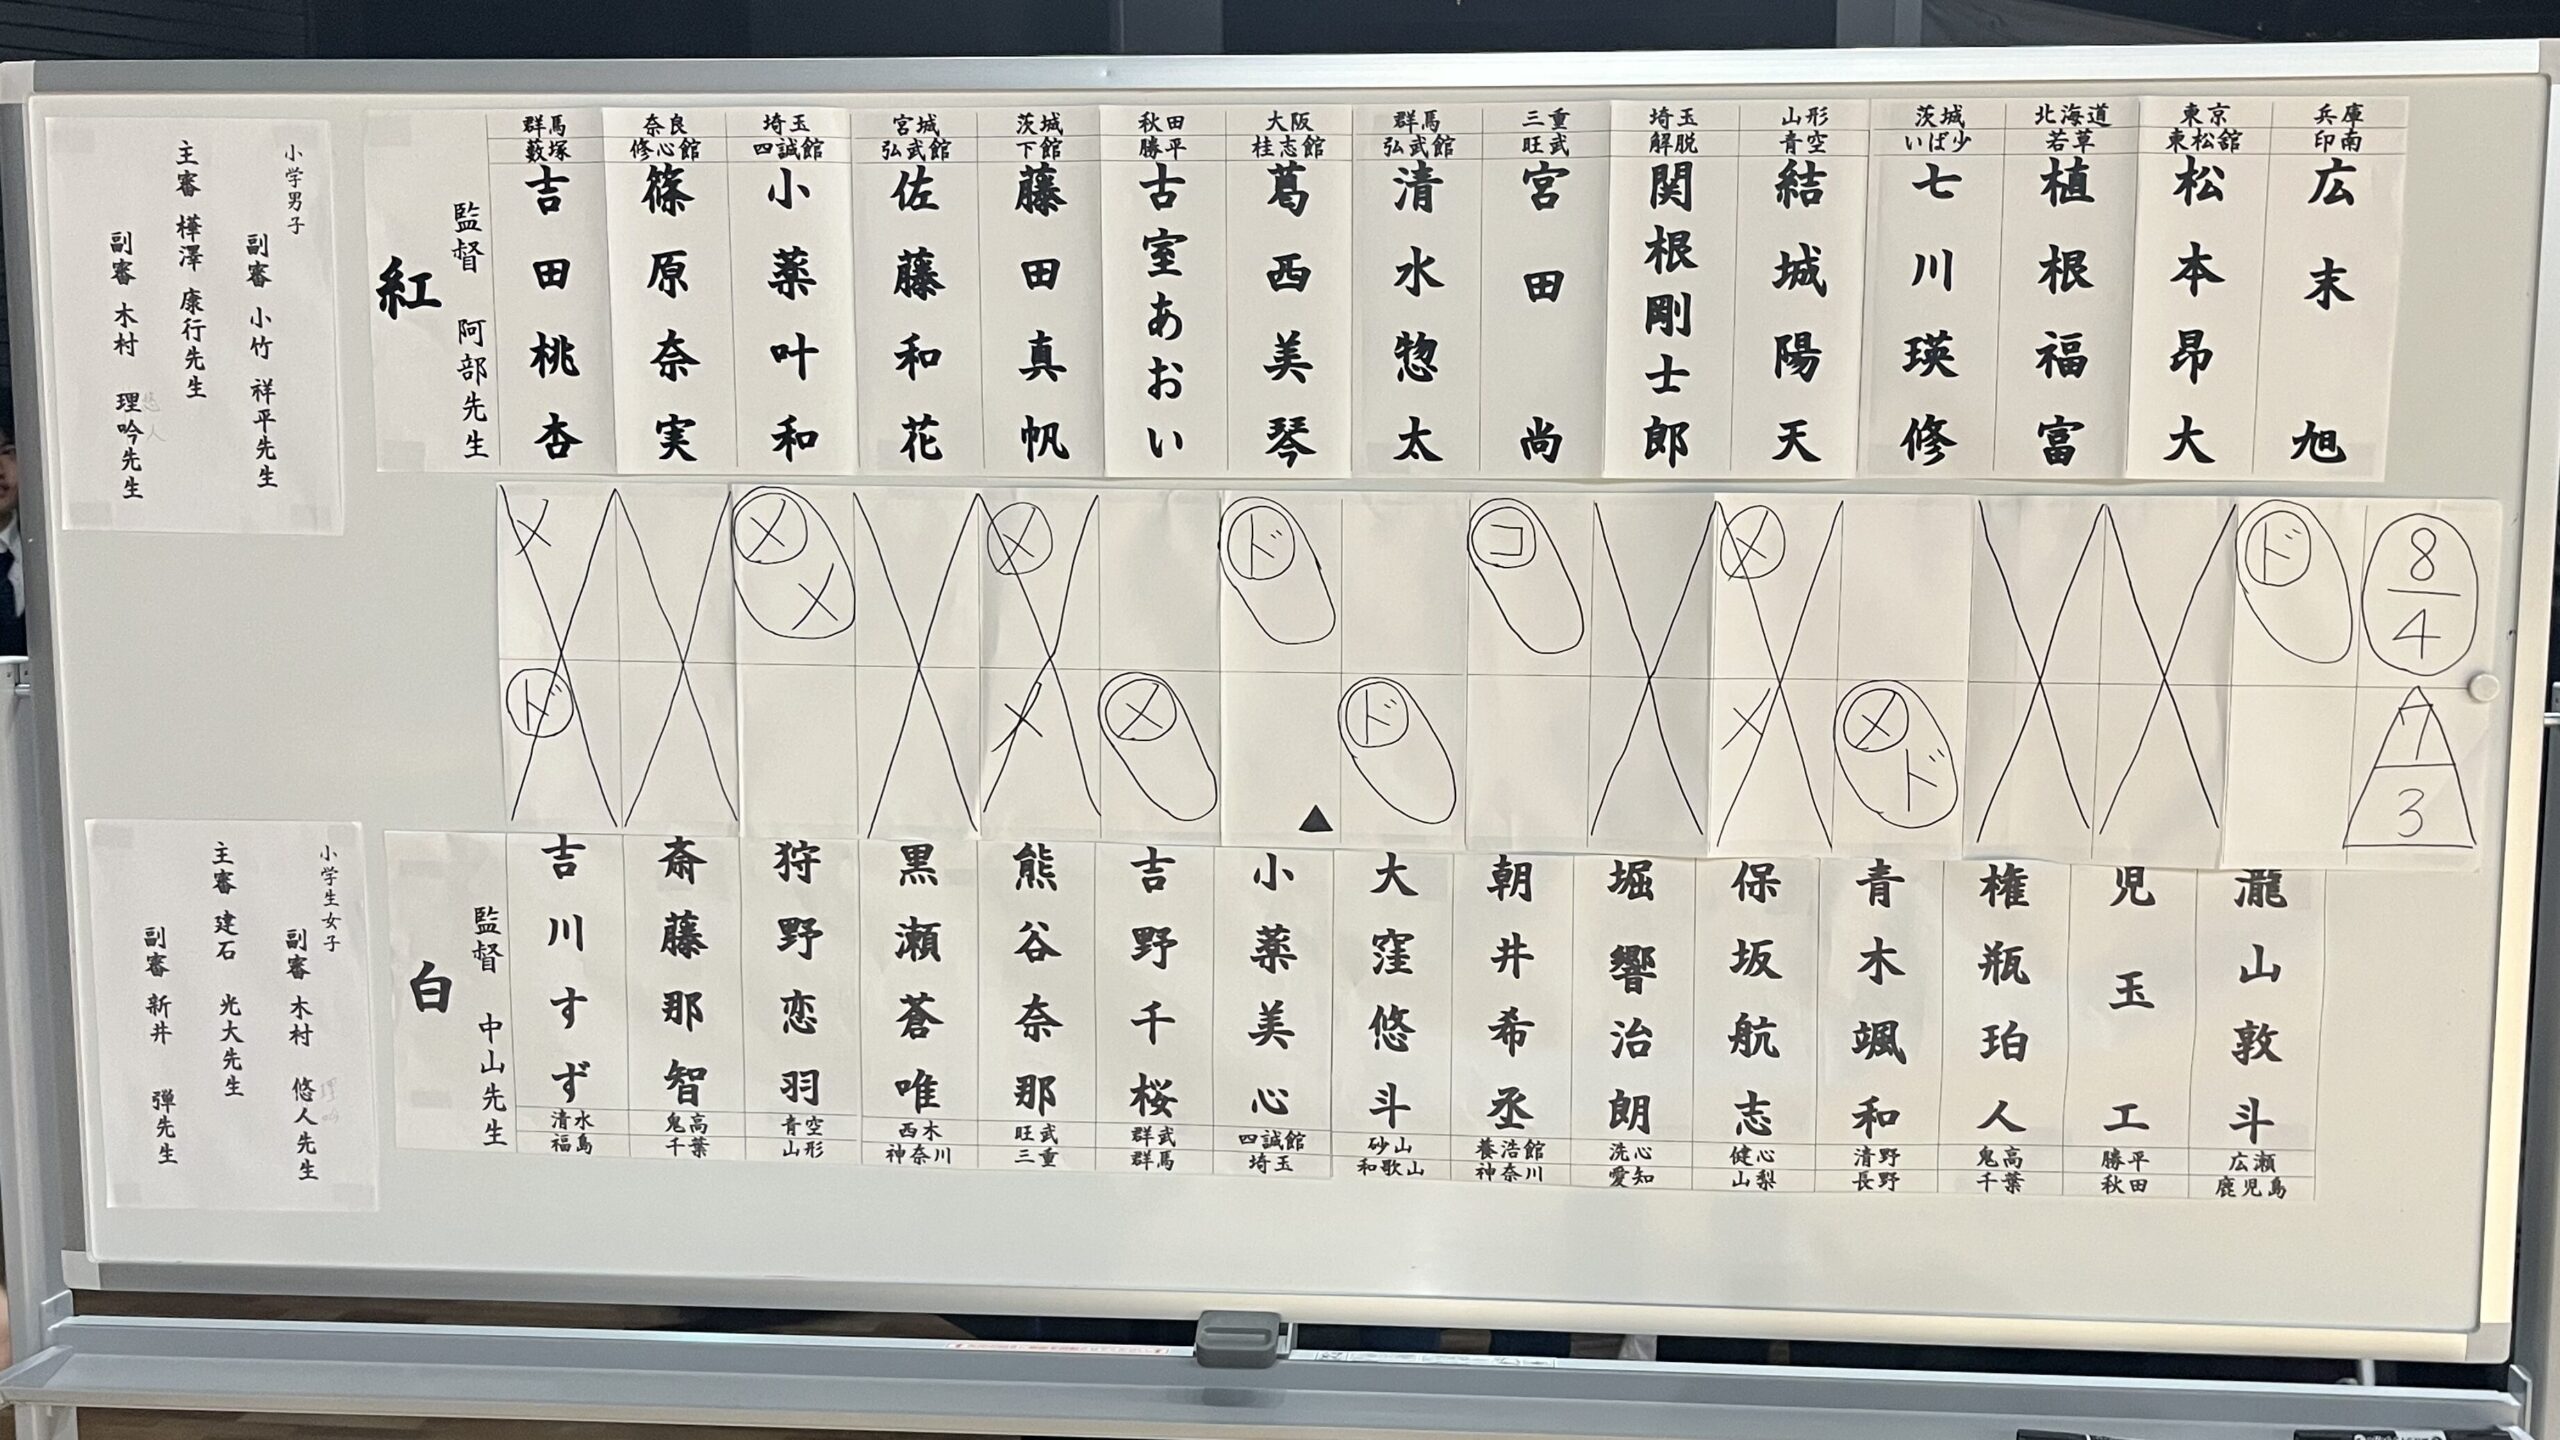 小学男子
副審 小竹 祥平先生
主審 樺澤 康行先生
副審 木村 理吟先生
紅
監督 阿部先生
群馬 藪塚 吉田桃杏
奈良 修心館 篠原奈実
埼玉 四誠館 小薬叶和
宮城 弘武館 佐藤和花
茨城 下館 藤田真帆
秋田 勝平 古室あおい
大阪 桂志館 葛西美琴
群馬 弘武館 清水惣太
三重 旺武 宮田尚
埼玉 解脱 関根剛士郎
山形 青空 結城陽天
茨城 いば少 七川瑛修
北海道 若草 植根福富
東京 東松舘 松本昂大
兵庫 印南 広末旭
メ
メ メ
メ
ド
コ
メ
ド
8
4
ド
メ
メ
▲
ド
メ
メ ド
7
3
小学生女子
副審 木村 悠人先生
主審 建石 光大先生
副審 新井 弾先生
白
監督 中山先生
吉川すず 清水 福島
斎藤那智 鬼高 千葉
狩野恋羽 青空 山形
黒瀬蒼唯 西木 神奈川
熊谷奈那 旺武 三重
吉野千桜 群武 群馬
小薬美心 四誠館 埼玉
大窪悠斗 砂山 和歌山
朝井希丞 養浩館 神奈川
堀響治朗 洗心 愛知
保坂航志 健心 山梨
青木颯和 清野 長野
権瓶珀人 鬼高 千葉
児玉工 勝平 秋田
瀧山敦斗 広瀬 鹿児島